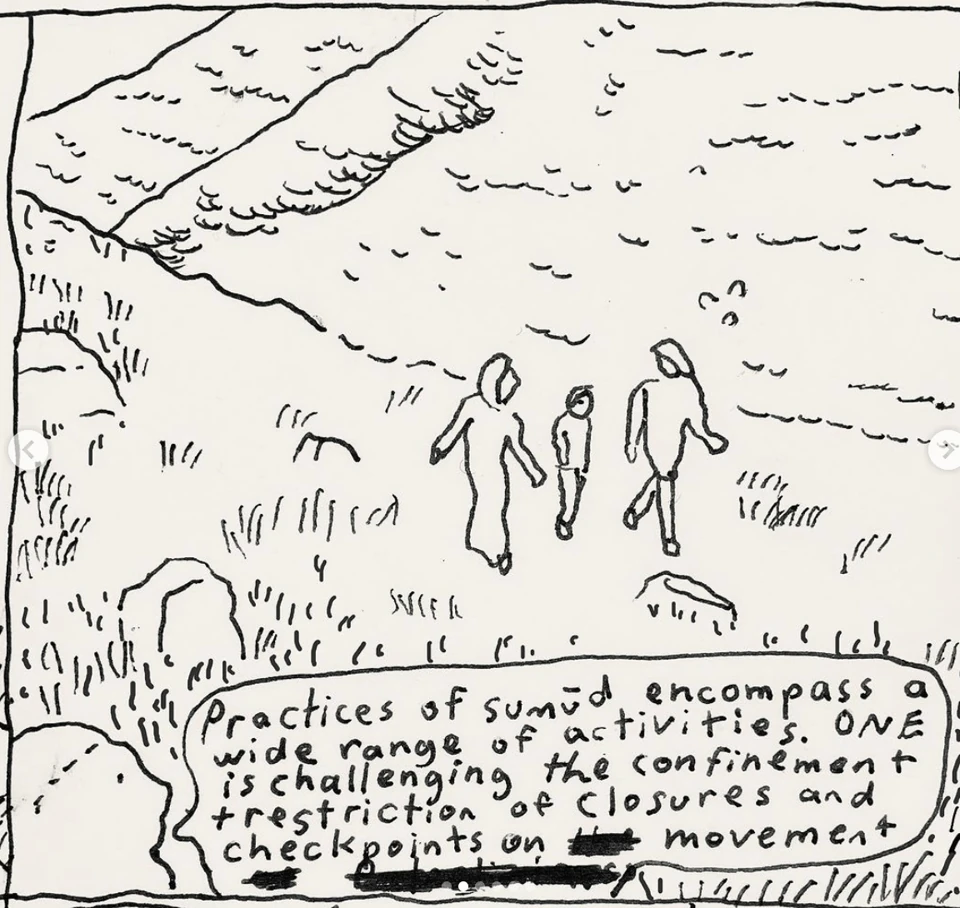 Practices of sumūd encompass a
wide range of activities. ONE
is challenging the confinement
+restriction of closures and
checkpoints on movement